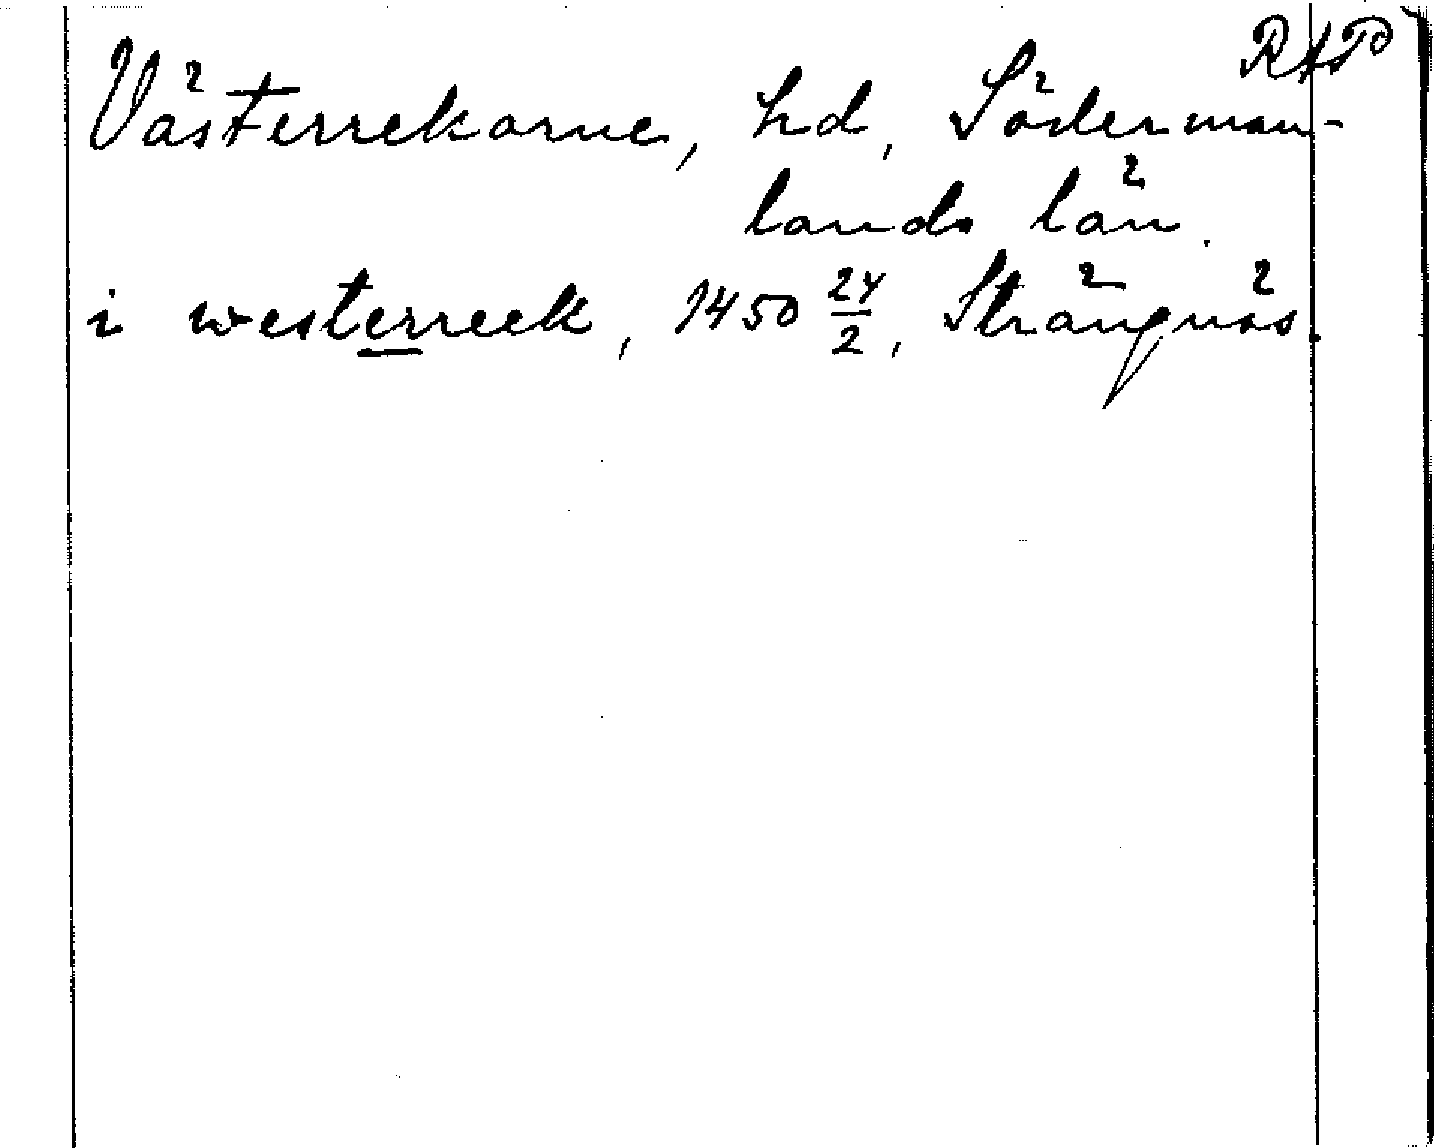 RAP
Västerrekarne, hd, Söderman-
lands län.
i westerreek, 1450 24/2, Strängnäs.